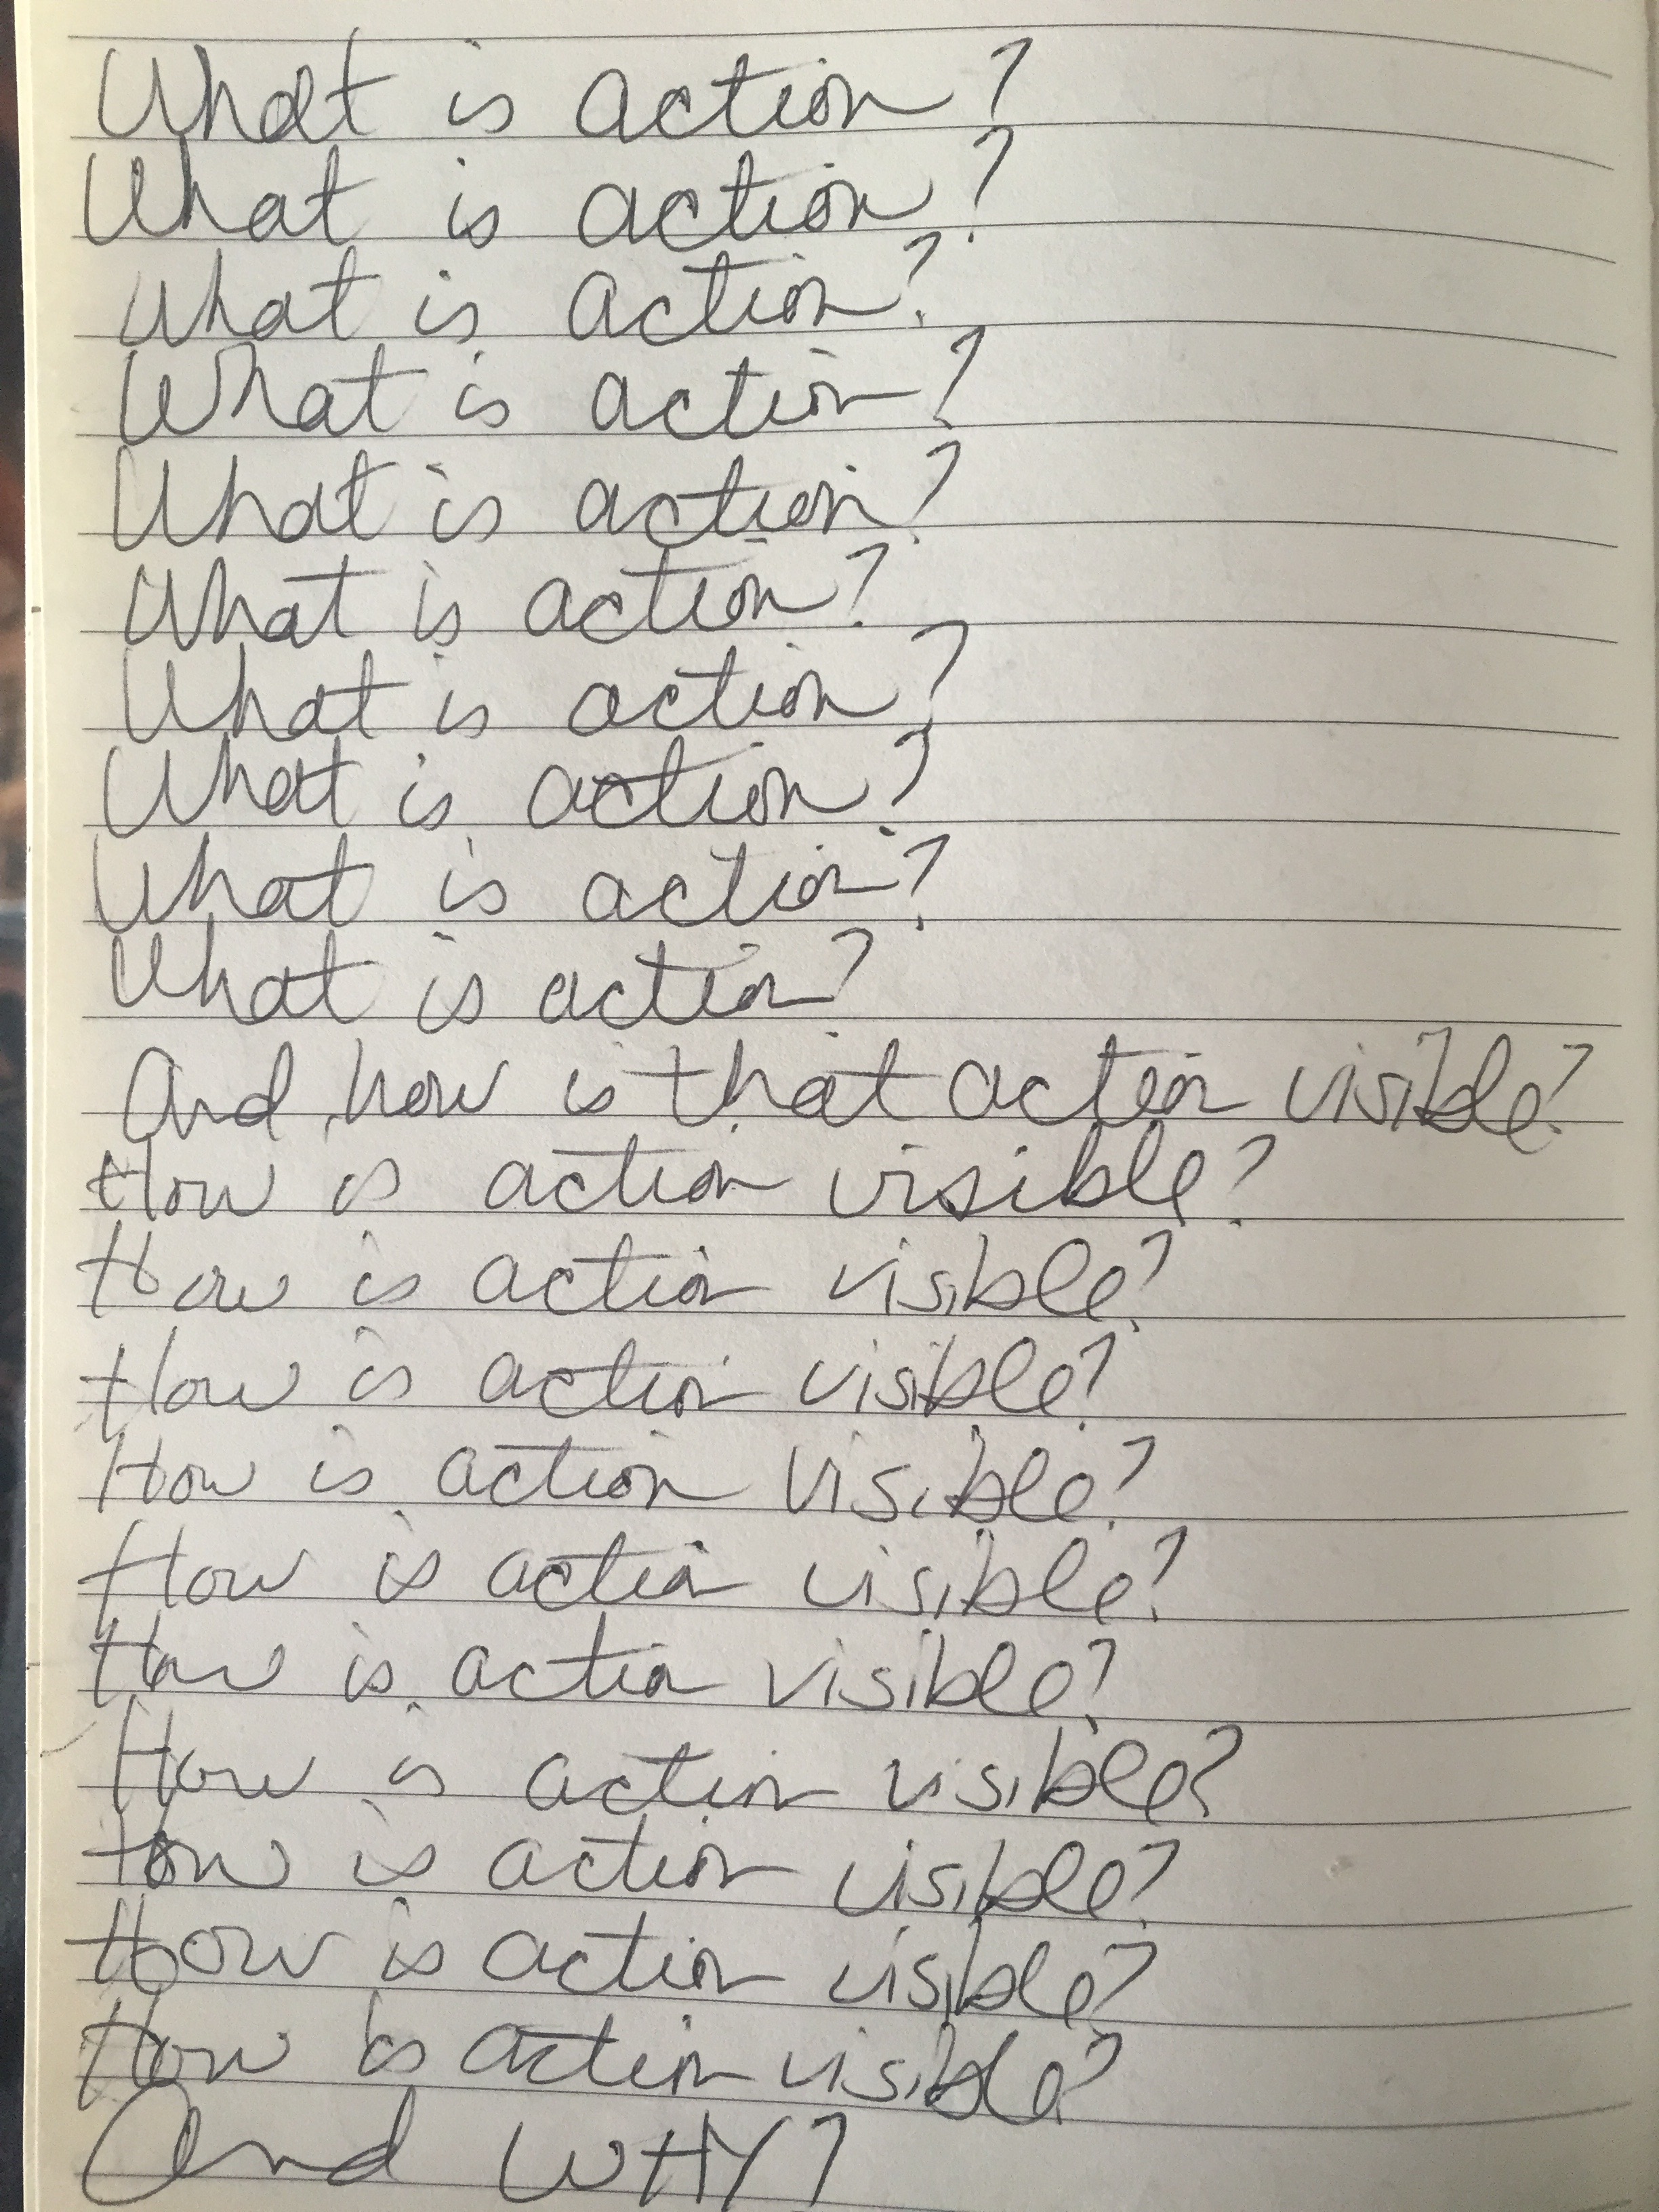 What is action?
What is action?
What is action?
What is action?
What is action?
What is action?
What is action?
What is action?
What is action?
What is action?
And how is that action visible?
How is action visible?
How is action visible?
How is action visible?
How is action visible?
How is action visible?
How is action visible?
How is action visible?
How is action visible?
How is action visible?
How is action visible?
And WHY?